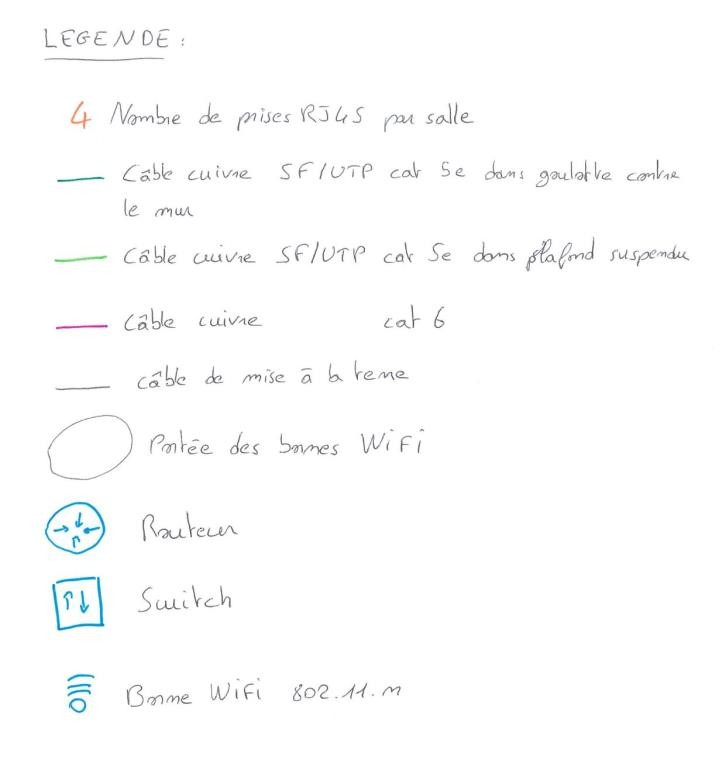 LEGENDE :
4 Nombre de prises RJ45 par salle
Câble cuivre SF/UTP cat 5e dans goulotte contre
le mur
Câble cuivre SF/UTP cat 5e dans plafond suspendu
Câble cuivre cat 6
câble de mise à la terre
Portée des bornes WiFi
Routeur
Switch
Borne WiFi 802.11.n